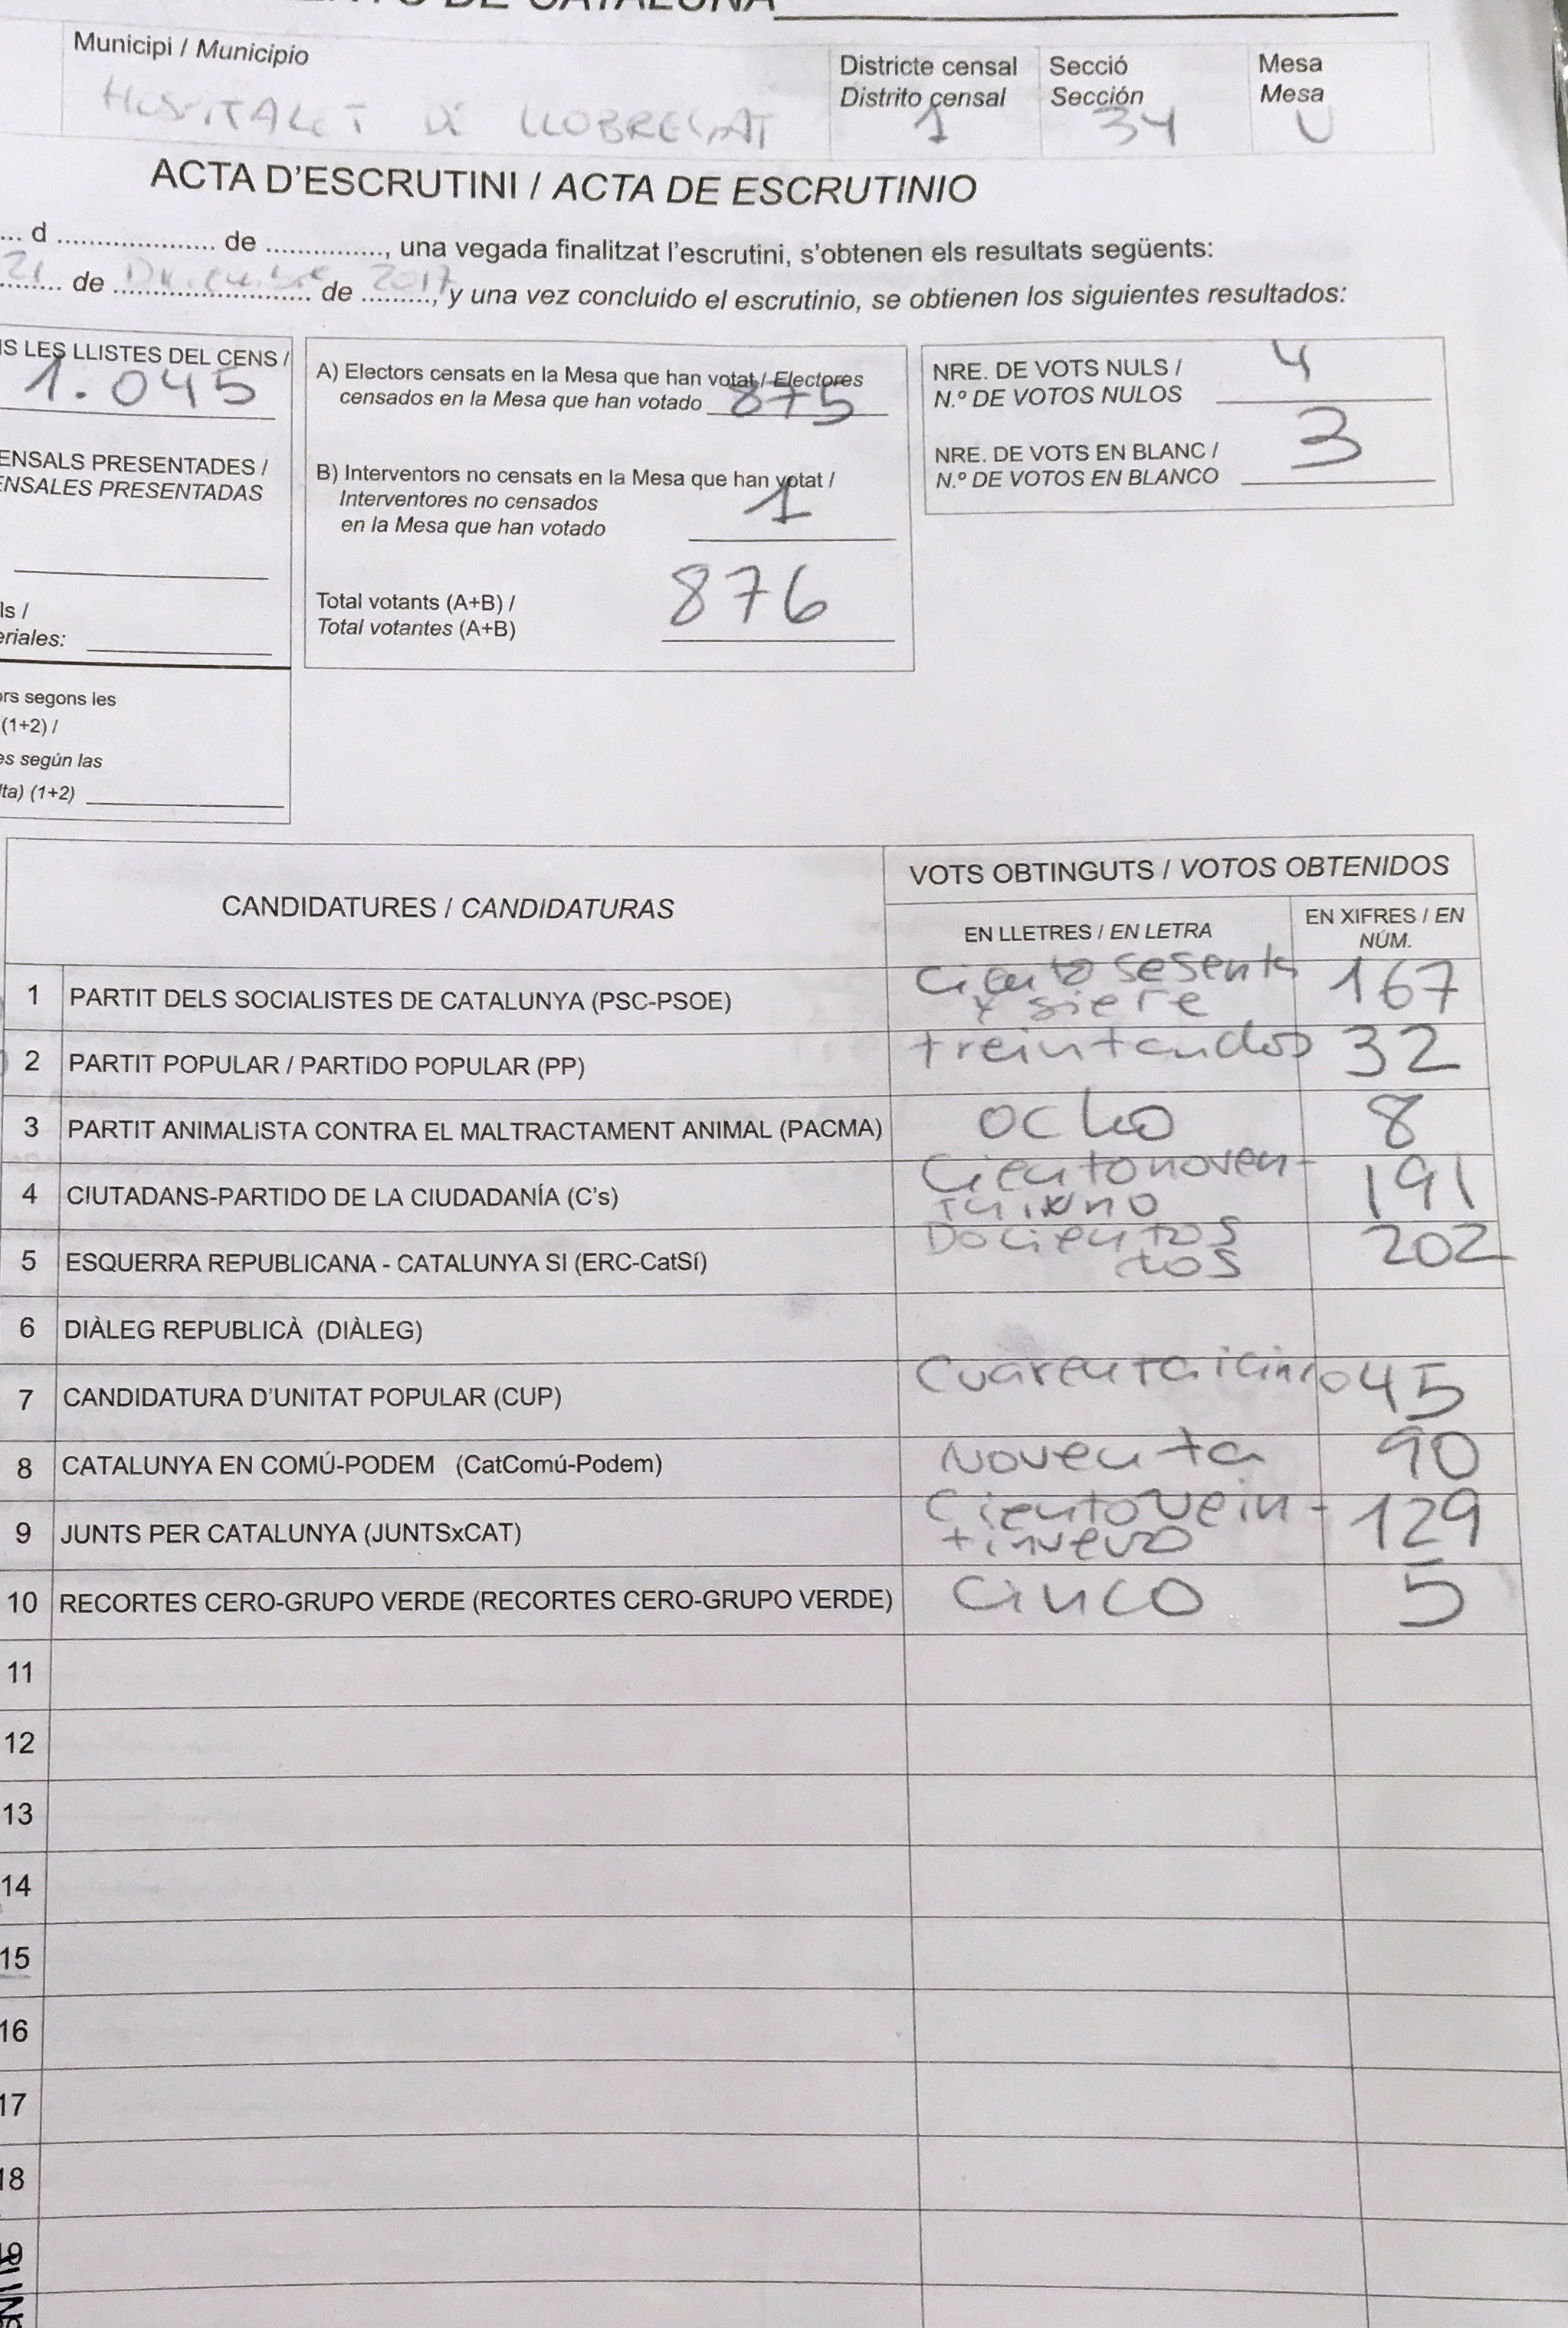 Municipi / Municipio
HOSPITALET DE LLOBREGAT
Districte censal
Distrito censal
1
Secció
Sección
34
Mesa
Mesa
U
ACTA D'ESCRUTINI / ACTA DE ESCRUTINIO
... d .................... de ..............., una vegada finalitzat l'escrutini, s'obtenen els resultats següents:
21 de Diciembre de 2017, y una vez concluido el escrutinio, se obtienen los siguientes resultados:
LES LLISTES DEL CENS /
1.045
PRESENTADES /
PRESENTADAS
(1+2) /
según las
(1+2)
A) Electors censats en la Mesa que han votat / Electores
censados en la Mesa que han votado 875
B) Interventors no censats en la Mesa que han votat /
Interventores no censados
en la Mesa que han votado 1
Total votants (A+B) /
Total votantes (A+B) 876
NRE. DE VOTS NULS /
N.º DE VOTOS NULOS 4
NRE. DE VOTS EN BLANC /
N.º DE VOTOS EN BLANCO 3
CANDIDATURES / CANDIDATURAS
VOTS OBTINGUTS / VOTOS OBTENIDOS
EN LLETRES / EN LETRA
EN XIFRES / EN
NÚM.
1 PARTIT DELS SOCIALISTES DE CATALUNYA (PSC-PSOE) Ciento sesenta
y siete 167
2 PARTIT POPULAR / PARTIDO POPULAR (PP) treintandos 32
3 PARTIT ANIMALISTA CONTRA EL MALTRACTAMENT ANIMAL (PACMA) ocho 8
4 CIUTADANS-PARTIDO DE LA CIUDADANÍA (C's) Cientonoven-
taiuno 191
5 ESQUERRA REPUBLICANA - CATALUNYA SI (ERC-CatSí) Docientos
tos 202
6 DIÀLEG REPUBLICÀ (DIÀLEG)
7 CANDIDATURA D'UNITAT POPULAR (CUP) Cuarentaicinco 45
8 CATALUNYA EN COMÚ-PODEM (CatComú-Podem) Noventa 90
9 JUNTS PER CATALUNYA (JUNTSxCAT) Cientovein-
tinuevo 129
10 RECORTES CERO-GRUPO VERDE (RECORTES CERO-GRUPO VERDE) Cinco 5
11
12
13
14
15
16
17
18
19